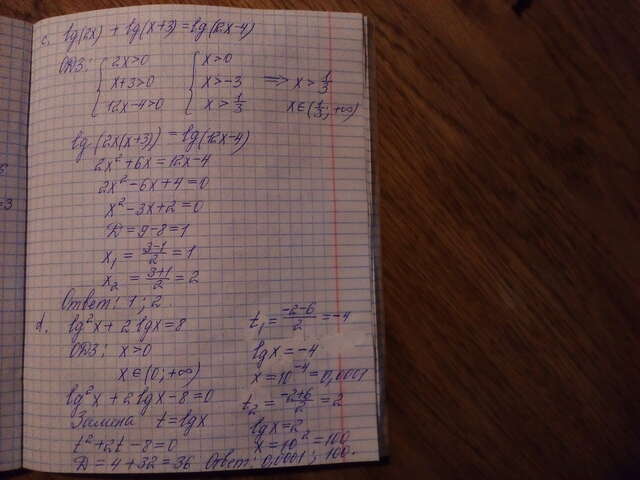 c. lg(2x) + lg(x+3) = lg(12x-4)
ОДЗ: { 2x>0 { x>0
x+3>0 x>-3 ⇒ x > 1/3
12x-4>0 x > 1/3 x∈(1/3; +∞)
lg(2x(x+3)) = lg(12x-4)
2x²+6x = 12x-4
2x²-6x+4=0
x²-3x+2=0
D=9-8=1
x₁ = (3-1)/2 = 1
x₂ = (3+1)/2 = 2
Ответ: 1; 2.
d. lg²x + 2 lgx = 8
ОДЗ: x>0
x∈(0; +∞)
lg²x + 2lgx - 8 = 0
Замена t = lgx
t²+2t-8=0
D = 4+32 = 36
t₁ = (-2-6)/2 = -4
lgx = -4
x=10⁻⁴=0,0001
t₂ = (-2+6)/2 = 2
lgx=2
x=10²=100
Ответ: 0,0001; 100.